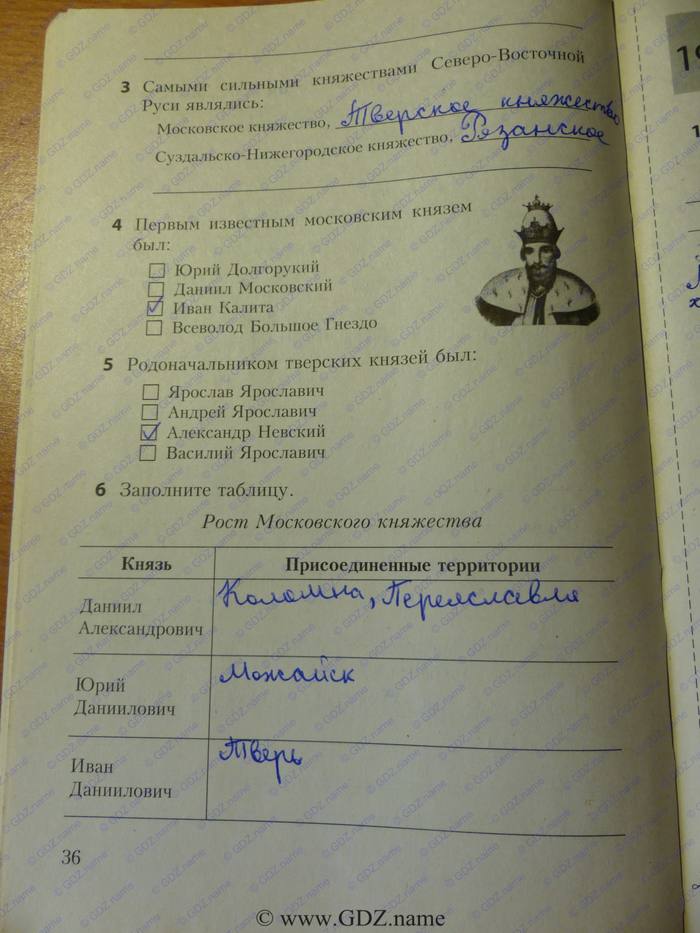 3 Самыми сильными княжествами Северо-Восточной
Руси являлись:
Московское княжество, Тверское княжество
Суздальско-Нижегородское княжество, Рязанское
4 Первым известным московским князем
был:
Юрий Долгорукий
Даниил Московский
Иван Калита
Всеволод Большое Гнездо
5 Родоначальником тверских князей был:
Ярослав Ярославич
Андрей Ярославич
Александр Невский
Василий Ярославич
6 Заполните таблицу.
Рост Московского княжества
Князь Присоединенные территории
Даниил
Александрович
Коломна, Переяславля
Юрий
Даниилович
Можайск
Иван
Даниилович
Тверь
36
© www.GDZ.name